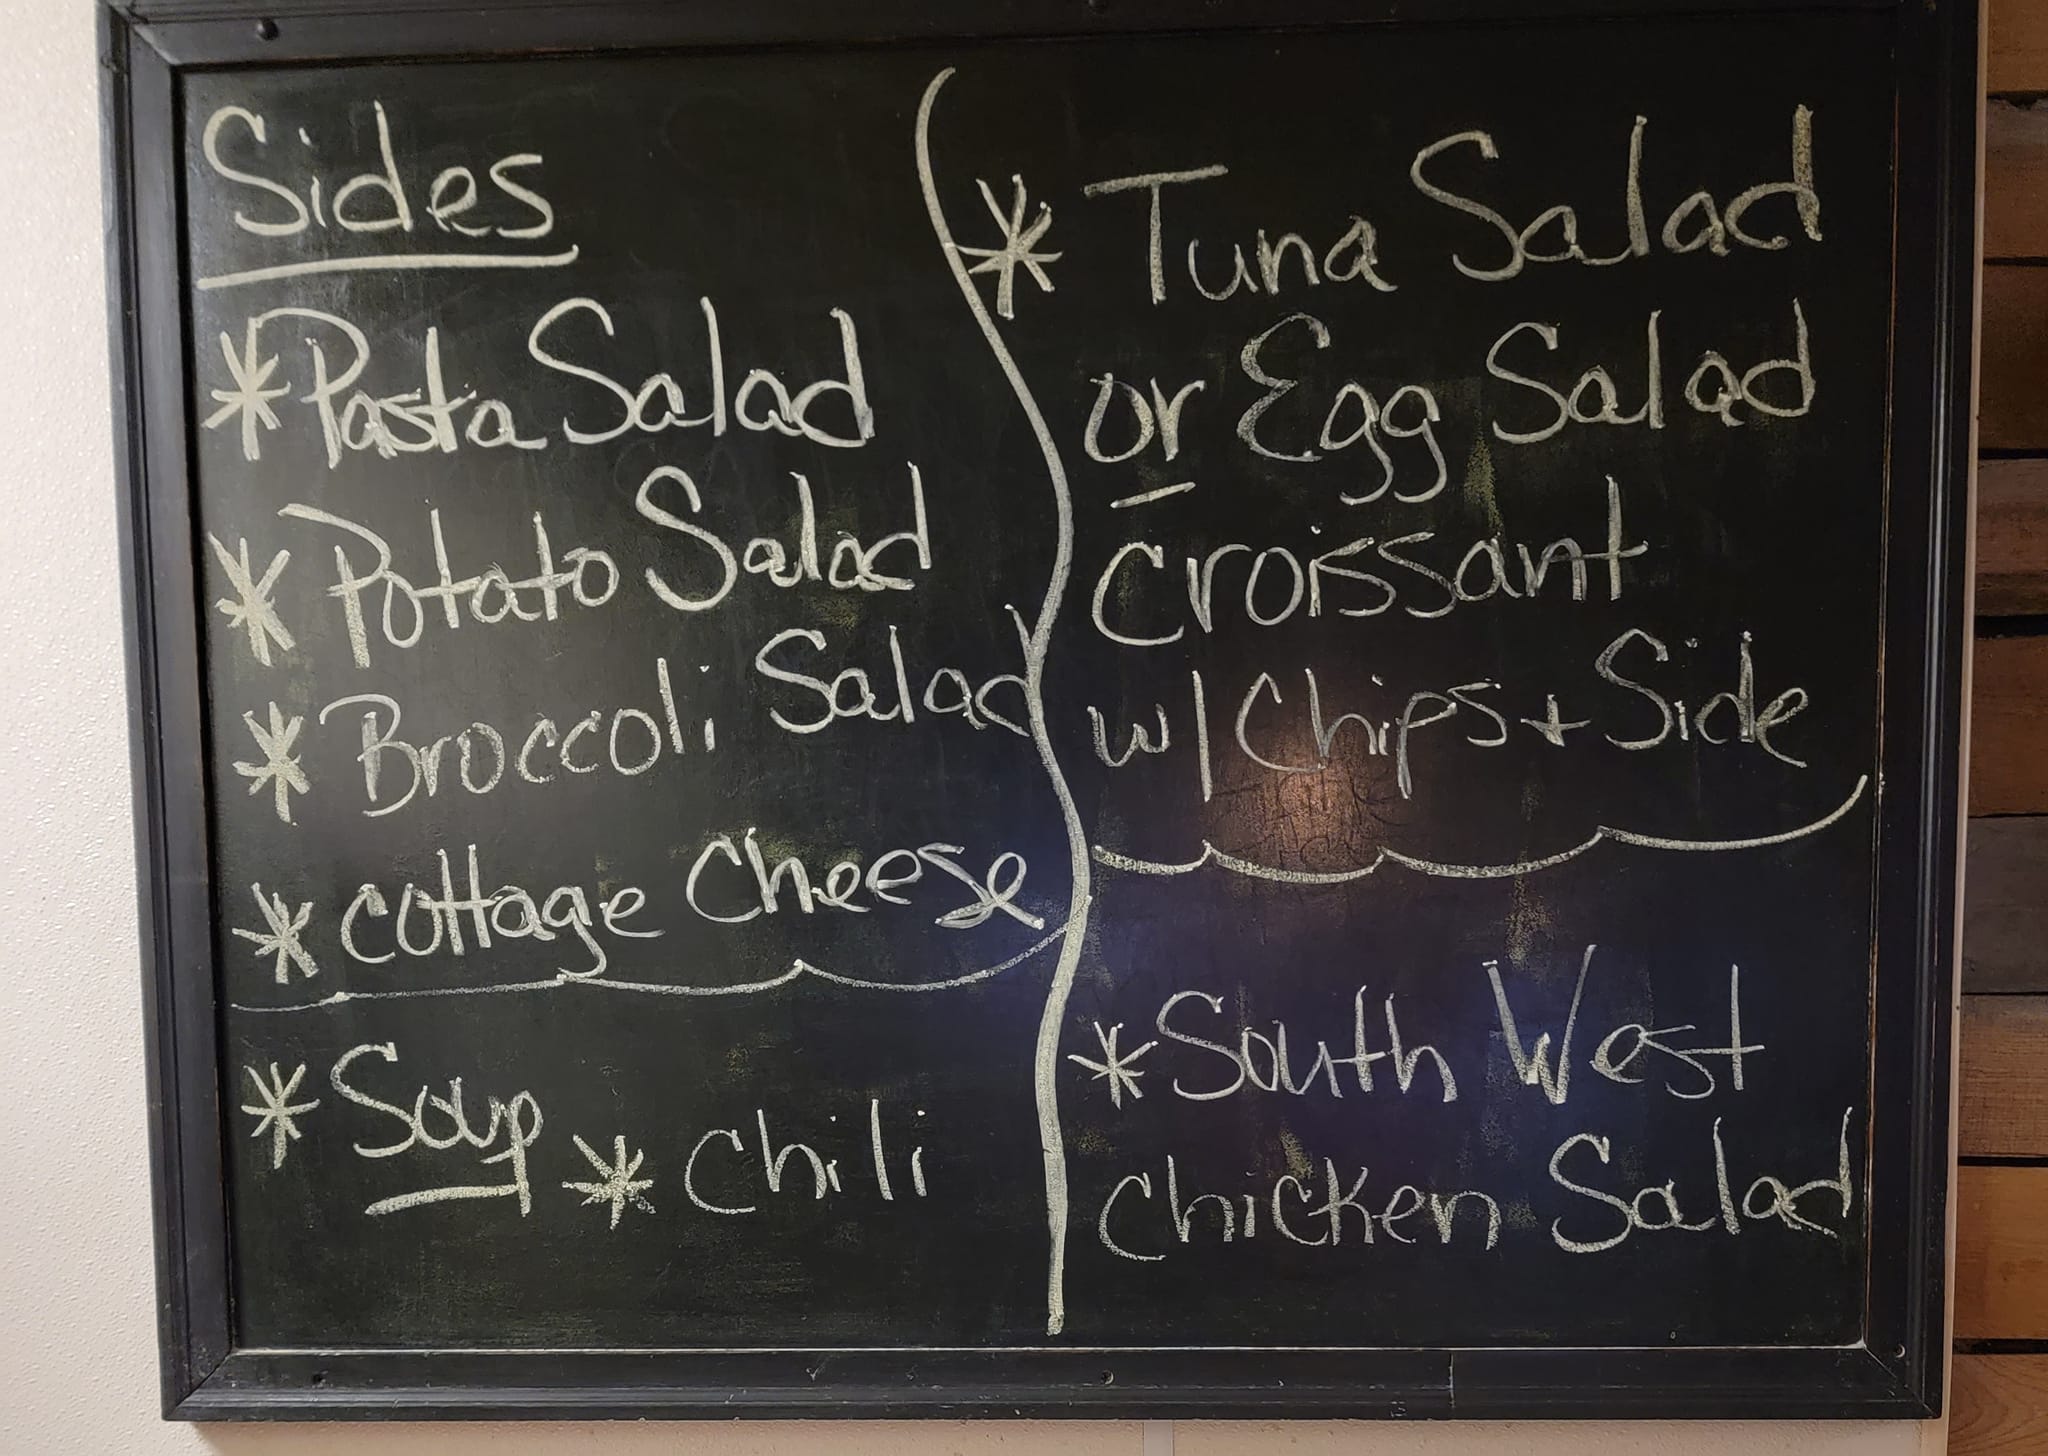 Sides
* Pasta Salad
* Potato Salad
* Broccoli Salad
* Cottage Cheese
* Soup * Chili
* Tuna Salad
or Egg Salad
Croissant
w/ Chips + Side
* South West
Chicken Salad